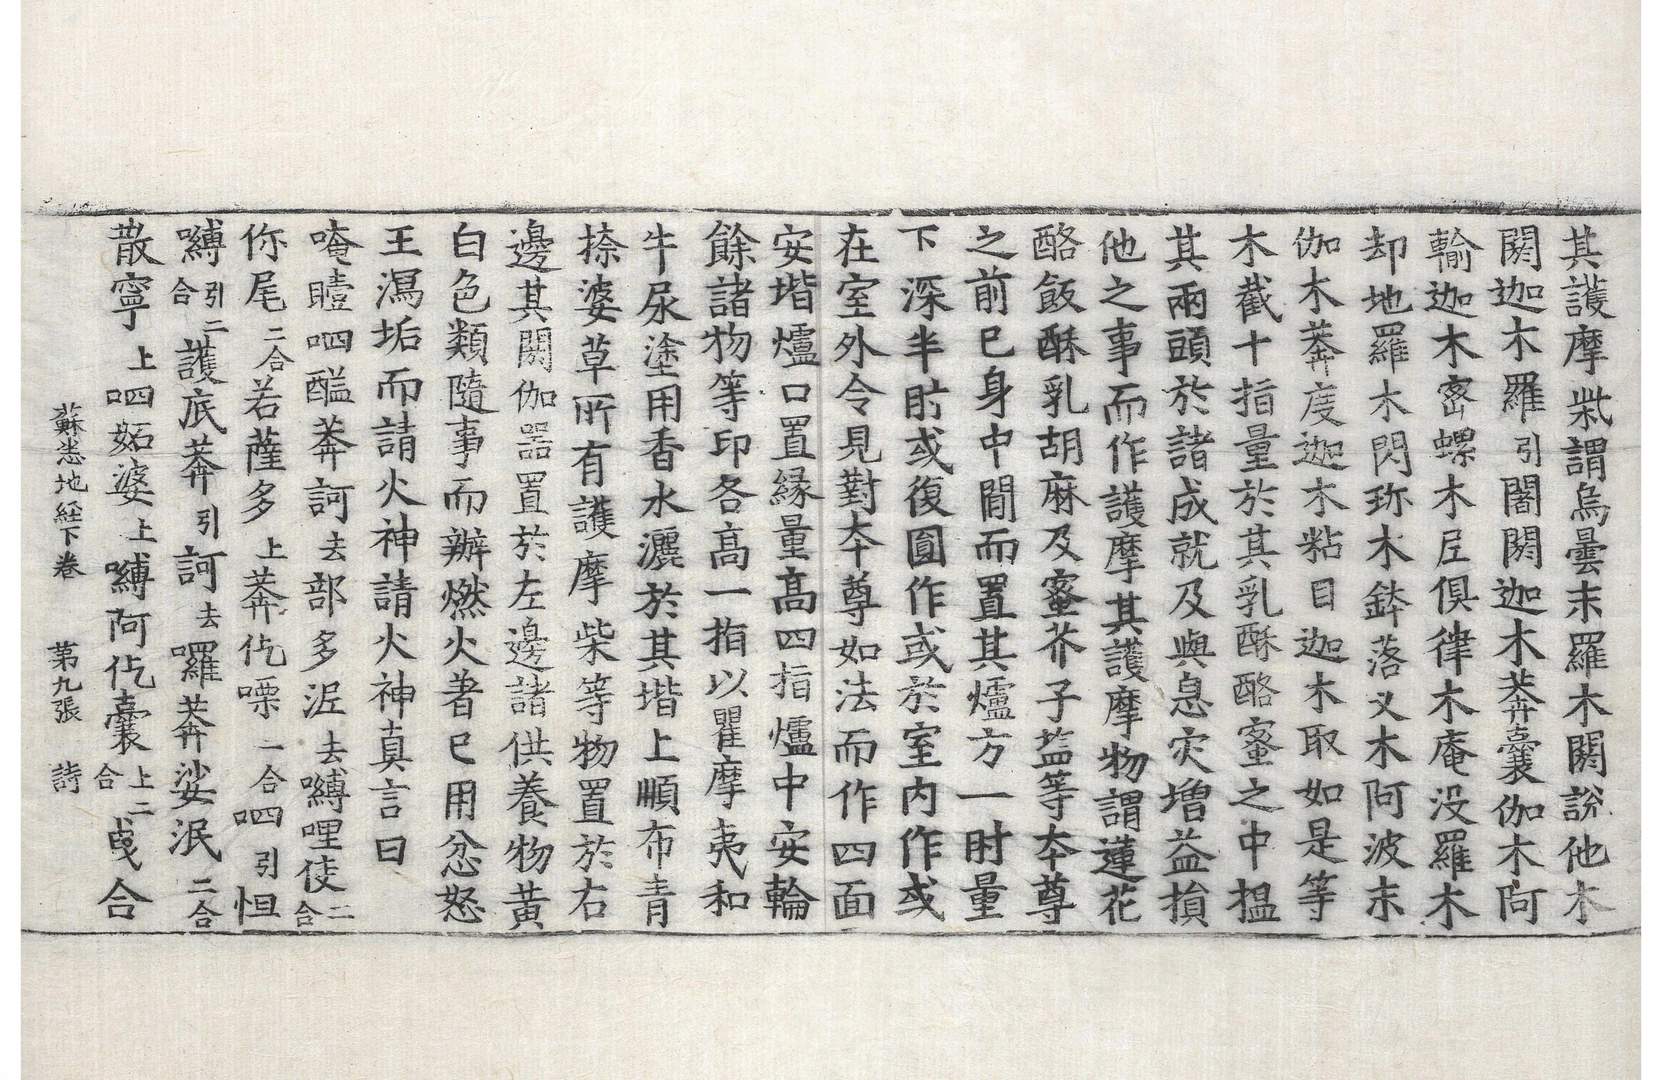 其護摩柴謂烏曇末羅木閼説他木
閼迦木羅引闇閼迦木莾囊伽木阿
輸迦木密螺木𡰱俱律木庵没羅木
却地羅木閃珎木鉢落叉木阿波末
伽木莾度迦木粘目迦木取如是等
木截十指量於其乳酥酪蜜之中搵
其兩頭於諸成就及與息灾増益損
他之事而作護摩其護摩物謂蓮花
酪飯酥乳胡麻及蜜芥子塩等夲尊
之前巳身中間而置其爐方一肘量
下深半肘或復圓作或於室内作或
在室外令見對夲尊如法而作四面
安堦爐口置緣量高四指爐中安輪
餘諸物等印各高一指以瞿摩夷和
牛尿塗用香水灑於其堦上順布青
捺婆草所有護摩柴等物置於右
邊其閼伽器置於左邊諸供養物黃
白色類隨事而辦燃火著巳用忿怒
王瀉垢而請火神請火神真言曰
唵曀呬醯莾訶去部多泥去嚩哩使二合
你尾二合若薩多上莾仡㗚一合呬引怛
嚩引二合護底莾引訶去囉莾娑泯二合
散寧上呬妬婆上嚩阿仡囊上二合曵合
蘇悉地經下卷　第九張　詩